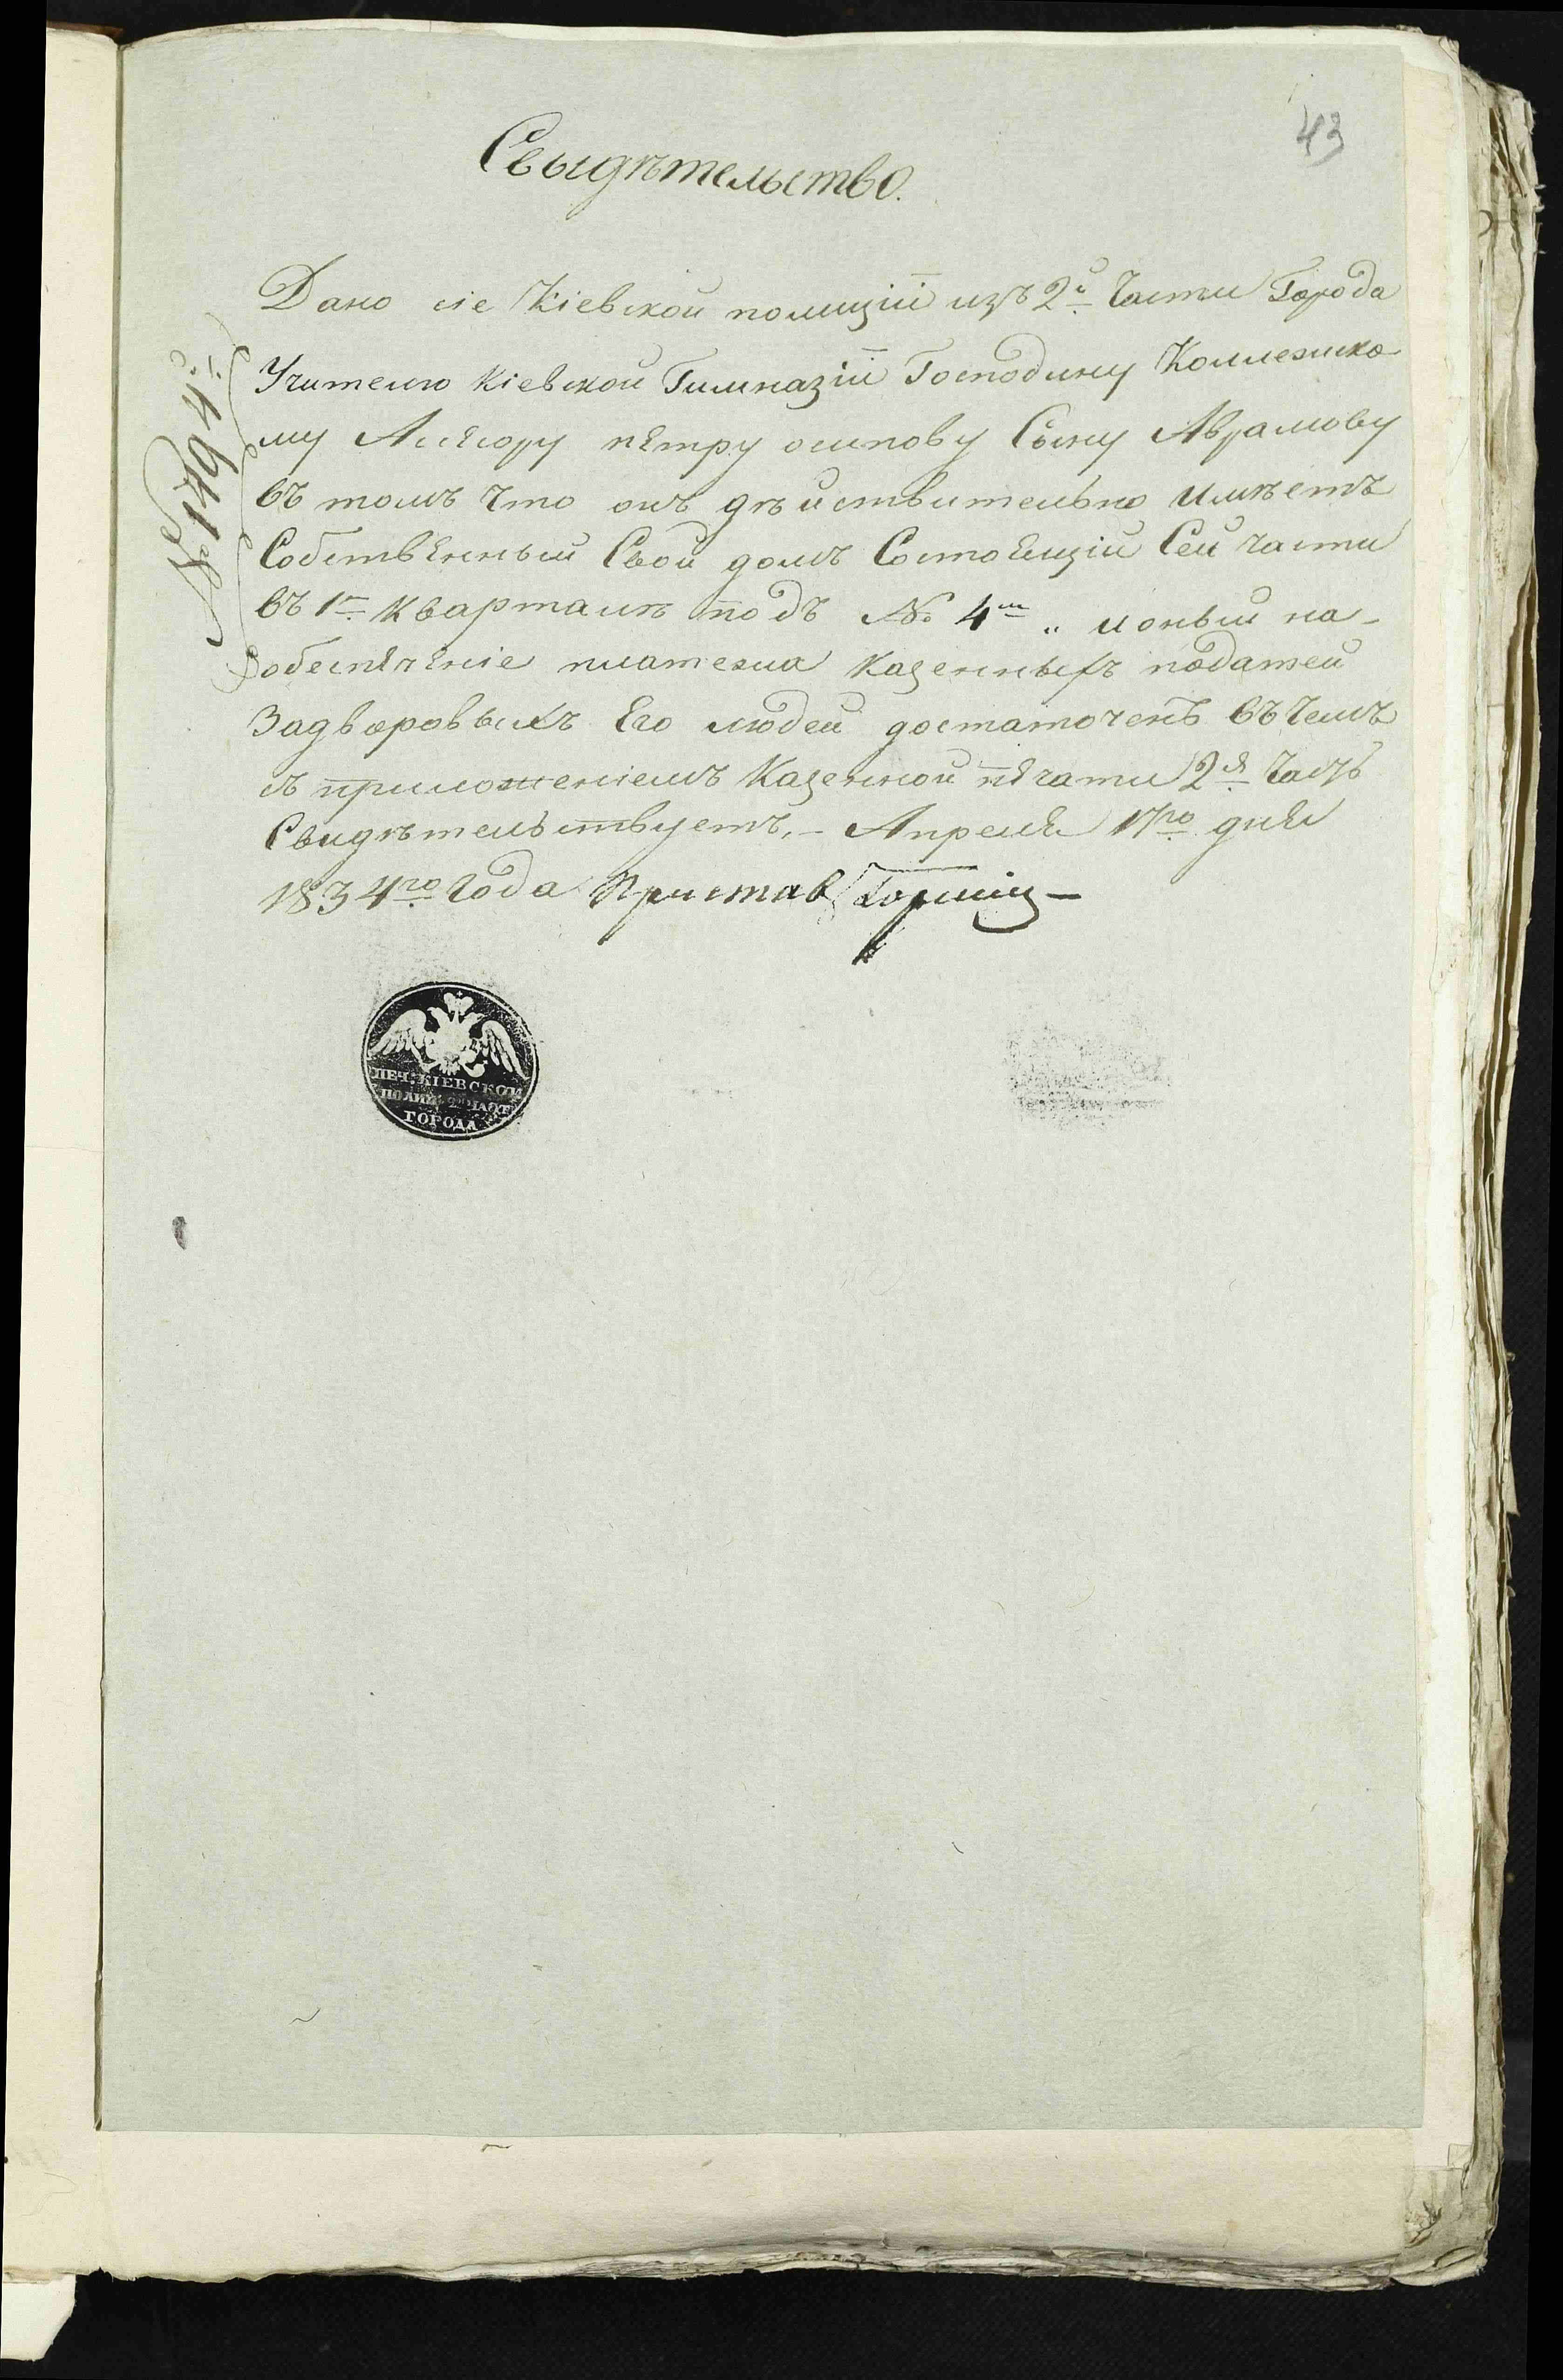 43
Свыдѣтельство.
Дано сіе Кіевской полиціи изъ 2й Части Города
Учителю Кіевской Гимназіи Господину Коллежско
му Асесору петру осипову Сыну Аврамову
въ томъ что онъ дѣйствительно имѣетъ
Собственный Свой домъ Состоещій Сей части
въ 1м кварталѣ подъ № 4м „ и оный на-
обеспеченіе платежа казенныхъ податей
За дворовыхъ Его людей достаточенъ въ чемъ
съ приложеніемъ Казенной печати 2я Часть
Свидѣтельствуетъ, – Апреля 17го дня
1834го Года Пристав
ПЕЧ. КІЕВСКОЙ
ПОЛИЦ. 2й ЧАСТ
ГОРОДА